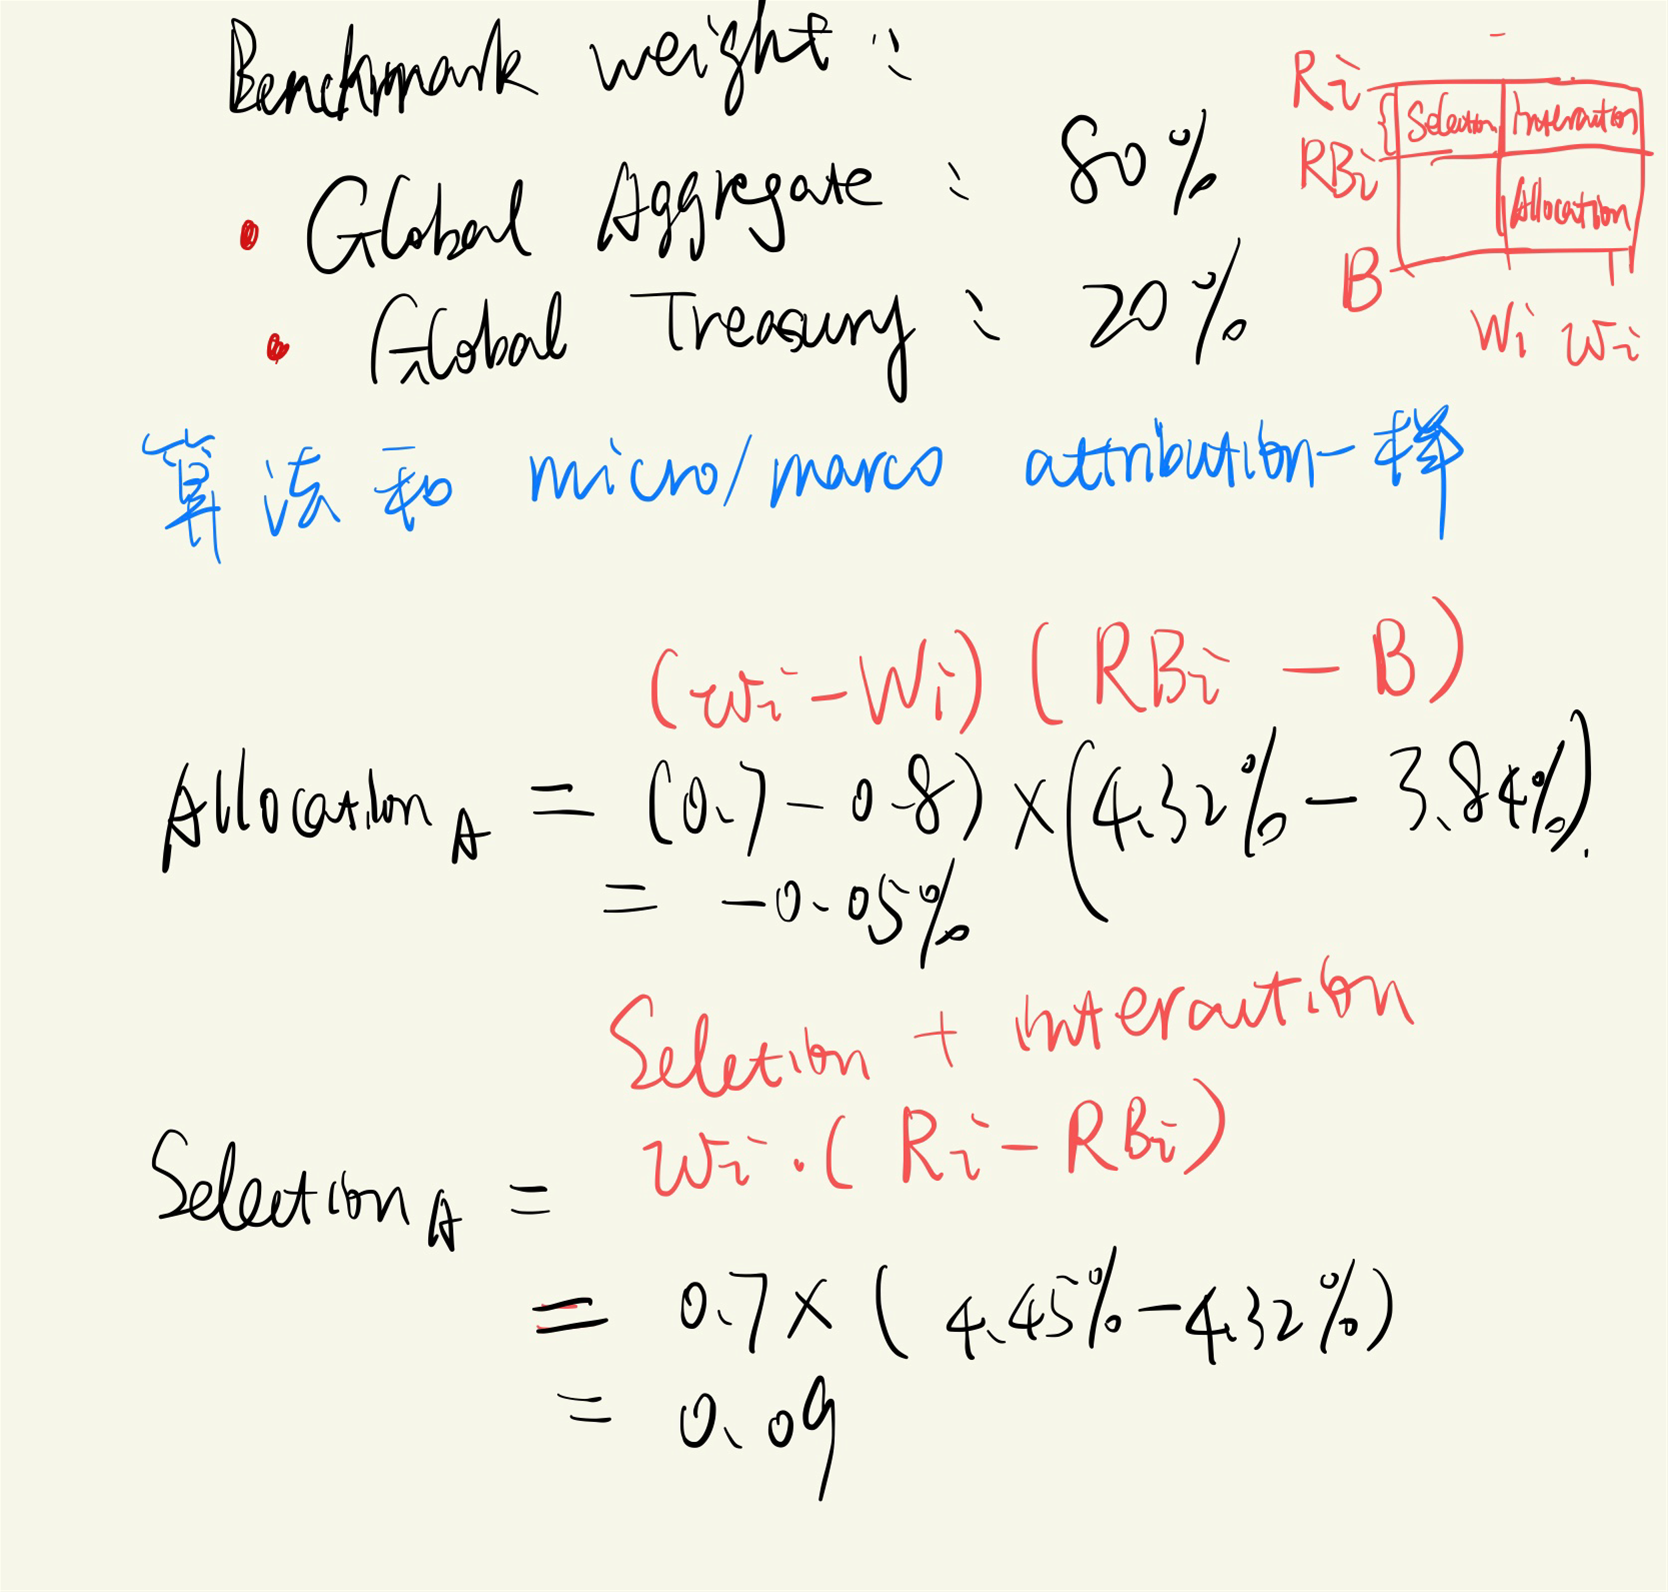 Benchmark weight :
• Global Aggregate : 80%
• Global Treasury : 20%
Ri
RBi
B
Selection Interaction
Allocation
Wi wi
算法和 micro/marco attribution一样
(wi-Wi) (RBi - B)
Allocation A = (0.7-0.8) × (4.32% - 3.84%).
= -0.05%
Seletion + interaction
wi·(Ri-RBi)
Selection A =
= 0.7 × (4.45% - 4.32%)
= 0.09